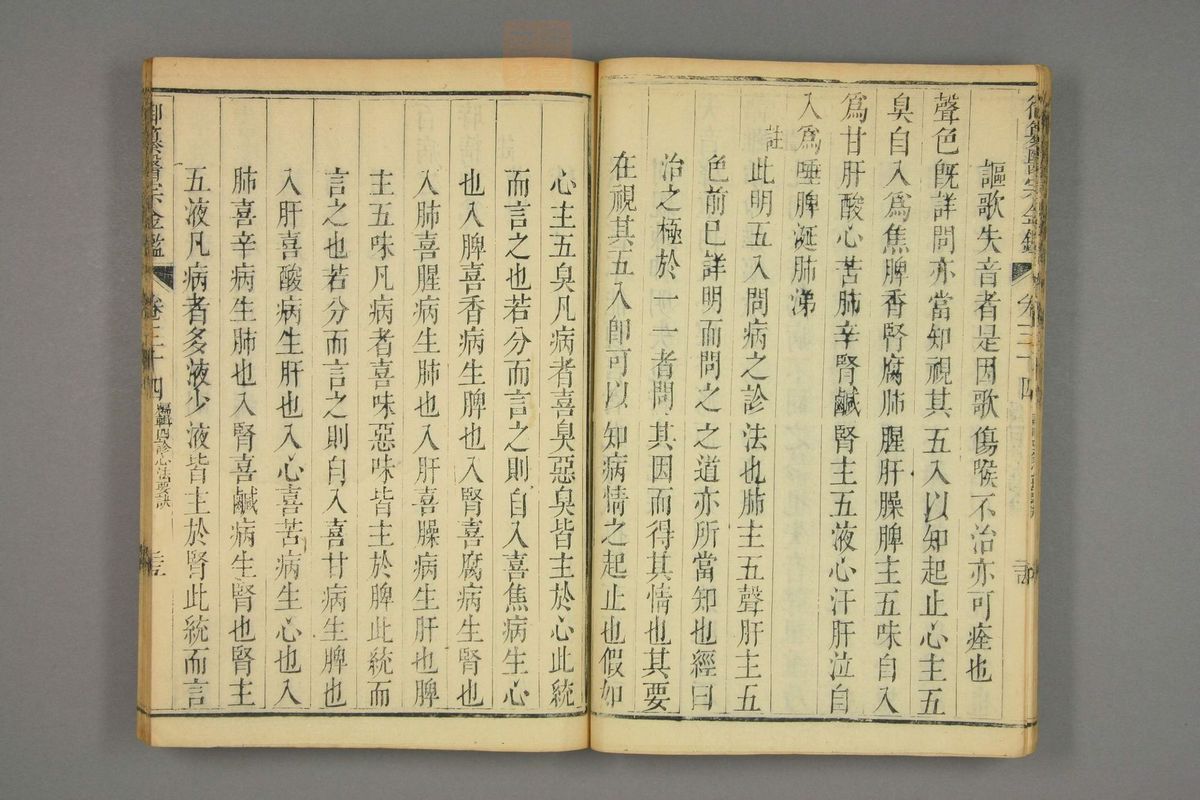 御纂醫宗金鑑 卷三十四
謳歌失音者是因歌傷喉不治亦可痊也
聲色既詳問亦當知視其五入以知起止心主五
臭自入為焦脾香腎腐肺腥肝臊脾主五味自入
為甘肝酸心苦肺辛腎鹹腎主五液心汗肝泣自
入為唾脾涎肺涕
註此明五入問病之診法也肺主五聲肝主五
色前已詳明而問之之道亦所當知也經曰
治之極於一一者問其因而得其情也其要
在視其五入即可以知病情之起止也假如
心主五臭凡病者喜臭惡臭皆主於心此統
而言之也若分而言之則自入喜焦病生心
也入脾喜香病生脾也入腎喜腐病生腎也
入肺喜腥病生肺也入肝喜臊病生肝也脾
主五味凡病者喜味惡味皆主於脾此統而
言之也若分而言之則自入喜甘病生脾也
入肝喜酸病生肝也入心喜苦病生心也入
肺喜辛病生肺也入腎喜鹹病生腎也腎主
五液凡病者多液少液皆主於腎此統而言
御纂醫宗金鑑 卷三十四 編輯四診心法要訣